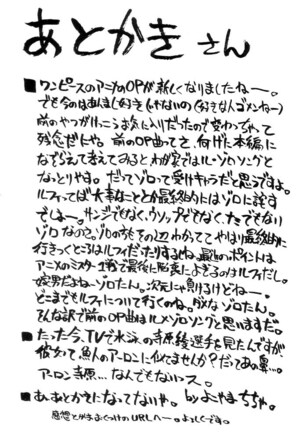 あとがき さん
■ワンピースのアニメのOPが新しくなりましたねー。
でも今のはあんまし好きじゃないの(好きな人ゴメンねー)
前のやつがけっこうお気に入りだったので変わっちゃって
残念だにゃ。前のOP曲ってさ、何げに本編に
なぞらえて考えてみるとわが家ではルーゾロソングと
なっとりやす。だってゾロって受けキャラだと思うですよ。
ルフィってば大事なこととか最終的にはゾロに託す
でしょー。サンジでもなく、ウソップでもなく、ナミでもない
ゾロなのさ。ゾロのうちもその辺わかっててやはり最終的に
行きつくところはルフィだったりするしね。最強のポイントは
アニメのミスター1戦で最後に脳裏によぎるのはルフィだし。
嫁男だよねーゾロたん。次元にゃ負けるけどねー…
どこまでもルフィについて行くのね。ダメなゾロたん。
そんな訳で前のOP曲はルーゾロソングと思いますだ。
■たった今、TVで水泳の寺尾選手を見たんですが
彼って魚人のアーロンに似てませんか?だってあの鼻…。
アーロン寺尾…なんでもないっス。
■あ、あとがきになってないや。byよやまちちゃ。
感想とかがまおくつけのURLへー。よろしくです。